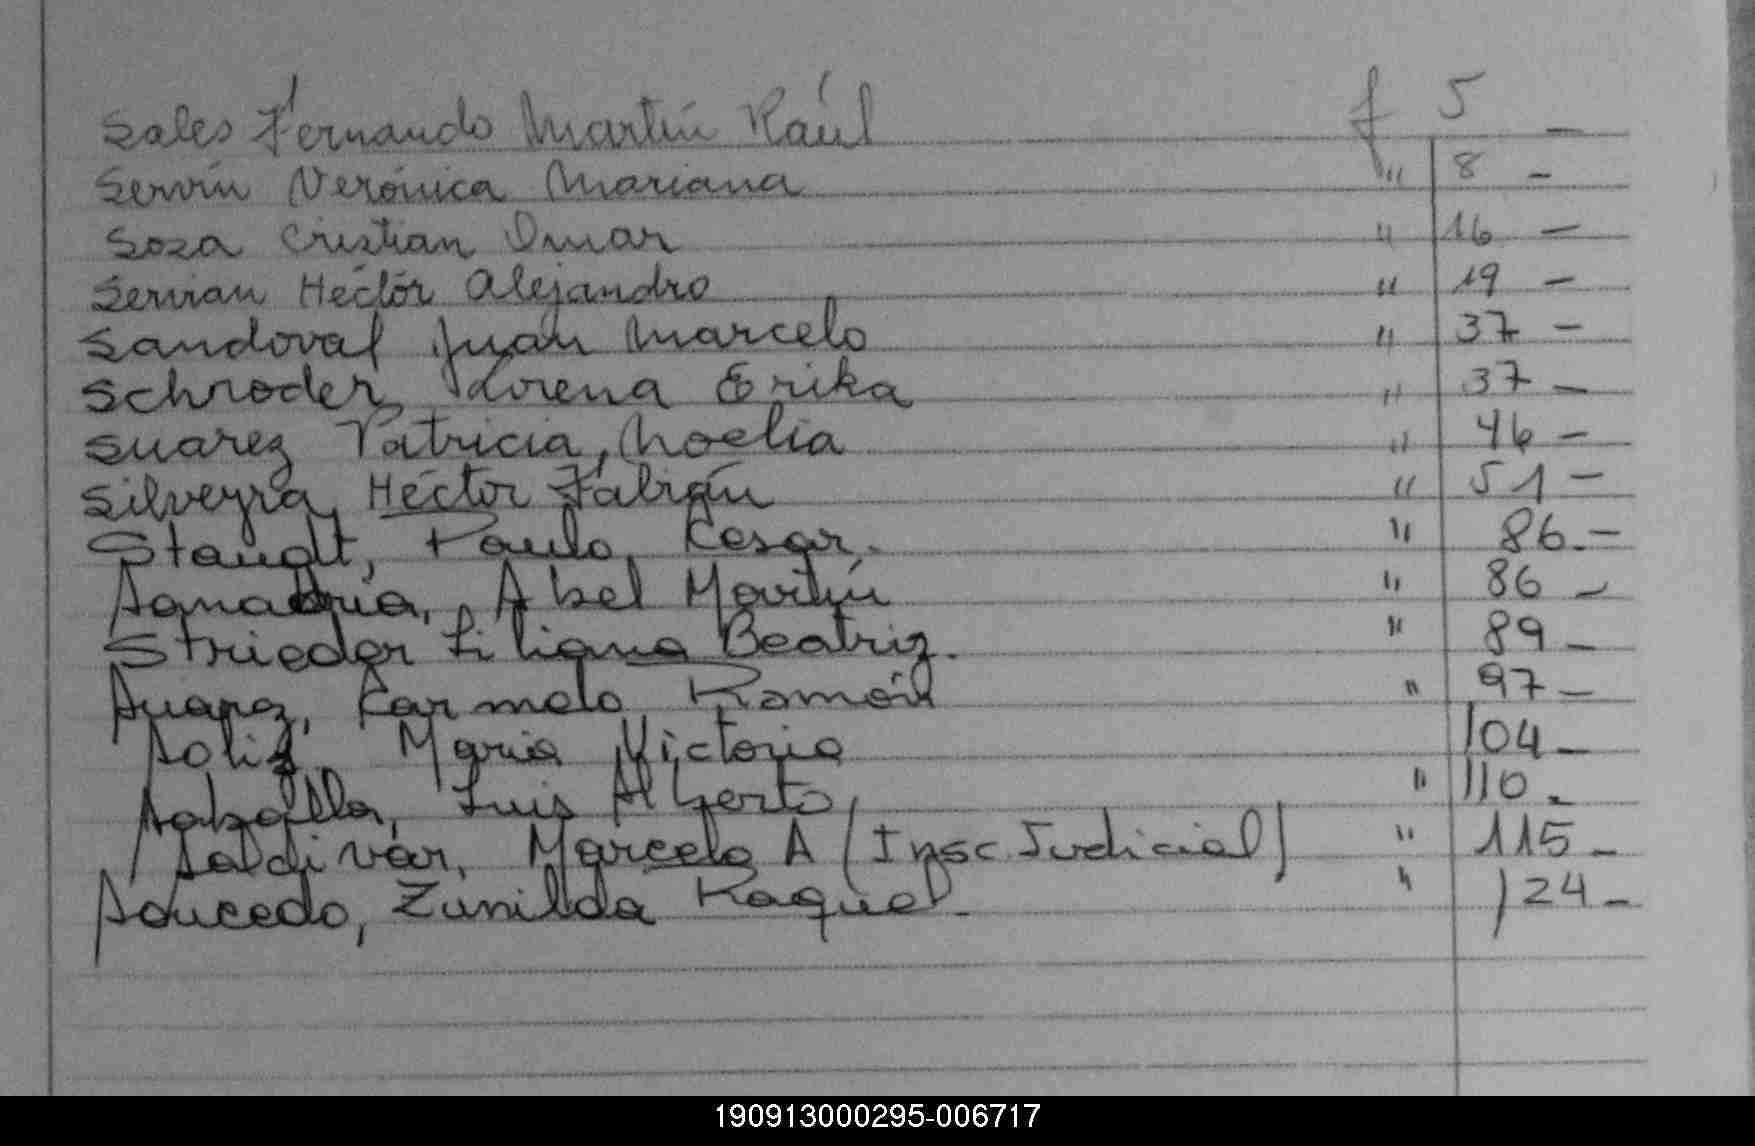 Sales Fernando Martín Raúl f 5 —
Servín Verónica Mariana " 8 —
Soza Cristian Omar " 16 —
Servian Héctor Alejandro " 19 —
Sandoval Juan Marcelo " 37 —
Schroder, Lorena Erika " 37 —
Suarez Patricia, Noelia " 46 —
Silveyra, Héctor Fabián " 51 —
Staudt, Paulo, Cesar. " 86.—
Abel Martín " 86 —
Strieder Liliana Beatriz. " 89 —
Suarez, Carmelo Ramón " 97 —
Soliz, Maria Victoria 104 —
Luis Alberto, " 110 —
Saldivar, Marcelo A (Insc Judicial) " 115 —
Saucedo, Zunilda Raquel. " 124 —
190913000295-006717